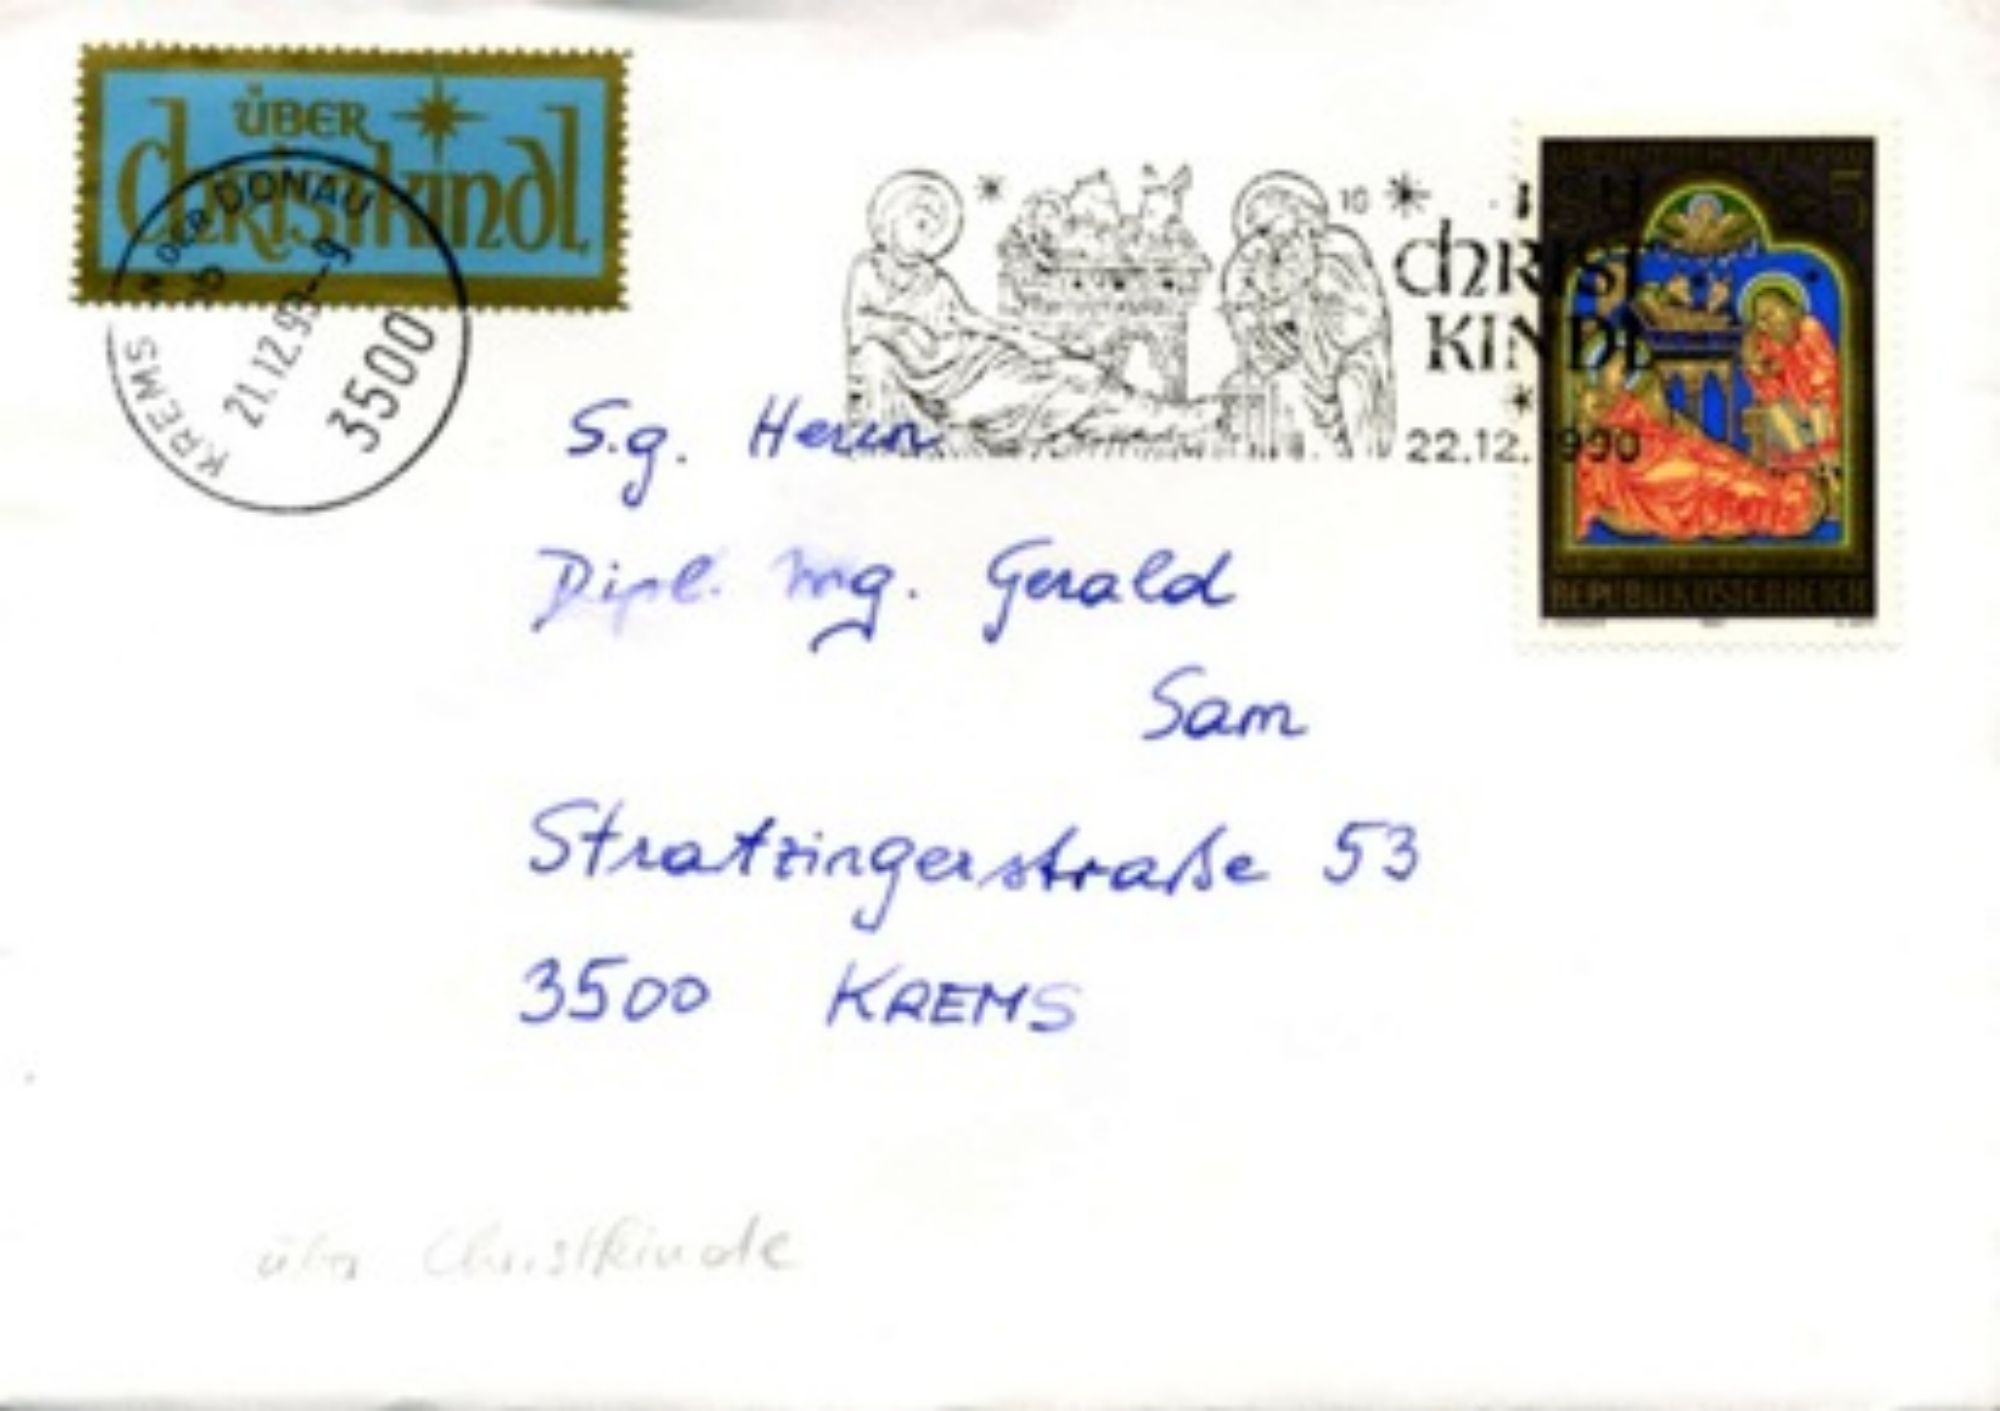 ÜBER
Christkindl
KREMS AN DER DONAU
21.12.93--9
3500
10
CHRIST
KINDL
22.12.1990
5
REPUBLIK ÖSTERREICH
S.g. Herrn
Dipl. Ing. Gerald
Sam
Stratzingerstraße 53
3500 KREMS
über Christkindl